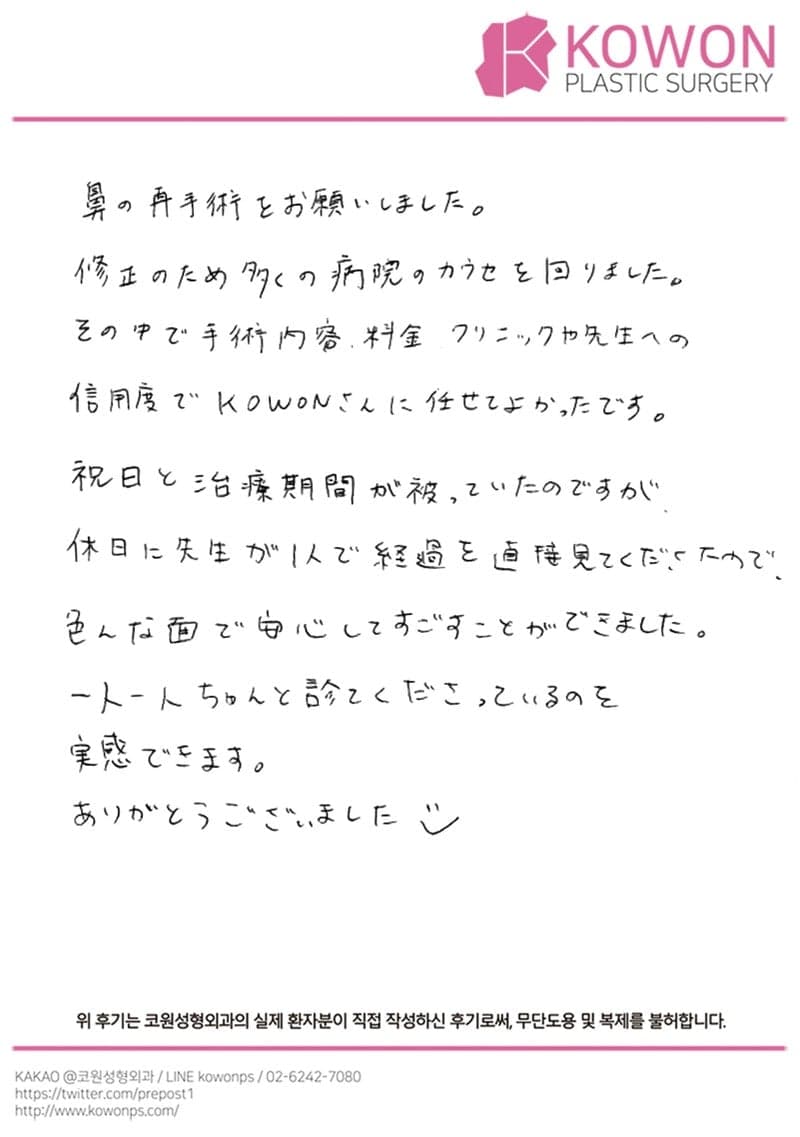 KOWON
PLASTIC SURGERY
鼻の再手術をお願いしました。
修正のため多くの病院のカウセを回りました。
その中で手術内容、料金、クリニックや先生への
信用度でKOWONさんに任せてよかったです。
祝日と治療期間が被っていたのですが、
休日に先生が1人で経過を直接見てくださったので、
色んな面で安心してすごすことができました。
一人一人ちゃんと診てくださっているのを
実感できます。
ありがとうございました
위 후기는 코원성형외과의 실제 환자분이 직접 작성하신 후기로써, 무단도용 및 복제를 불허합니다.
KAKAO @코원성형외과 / LINE kowonps / 02-6242-7080
https://twitter.com/prepost1
http://www.kowonps.com/